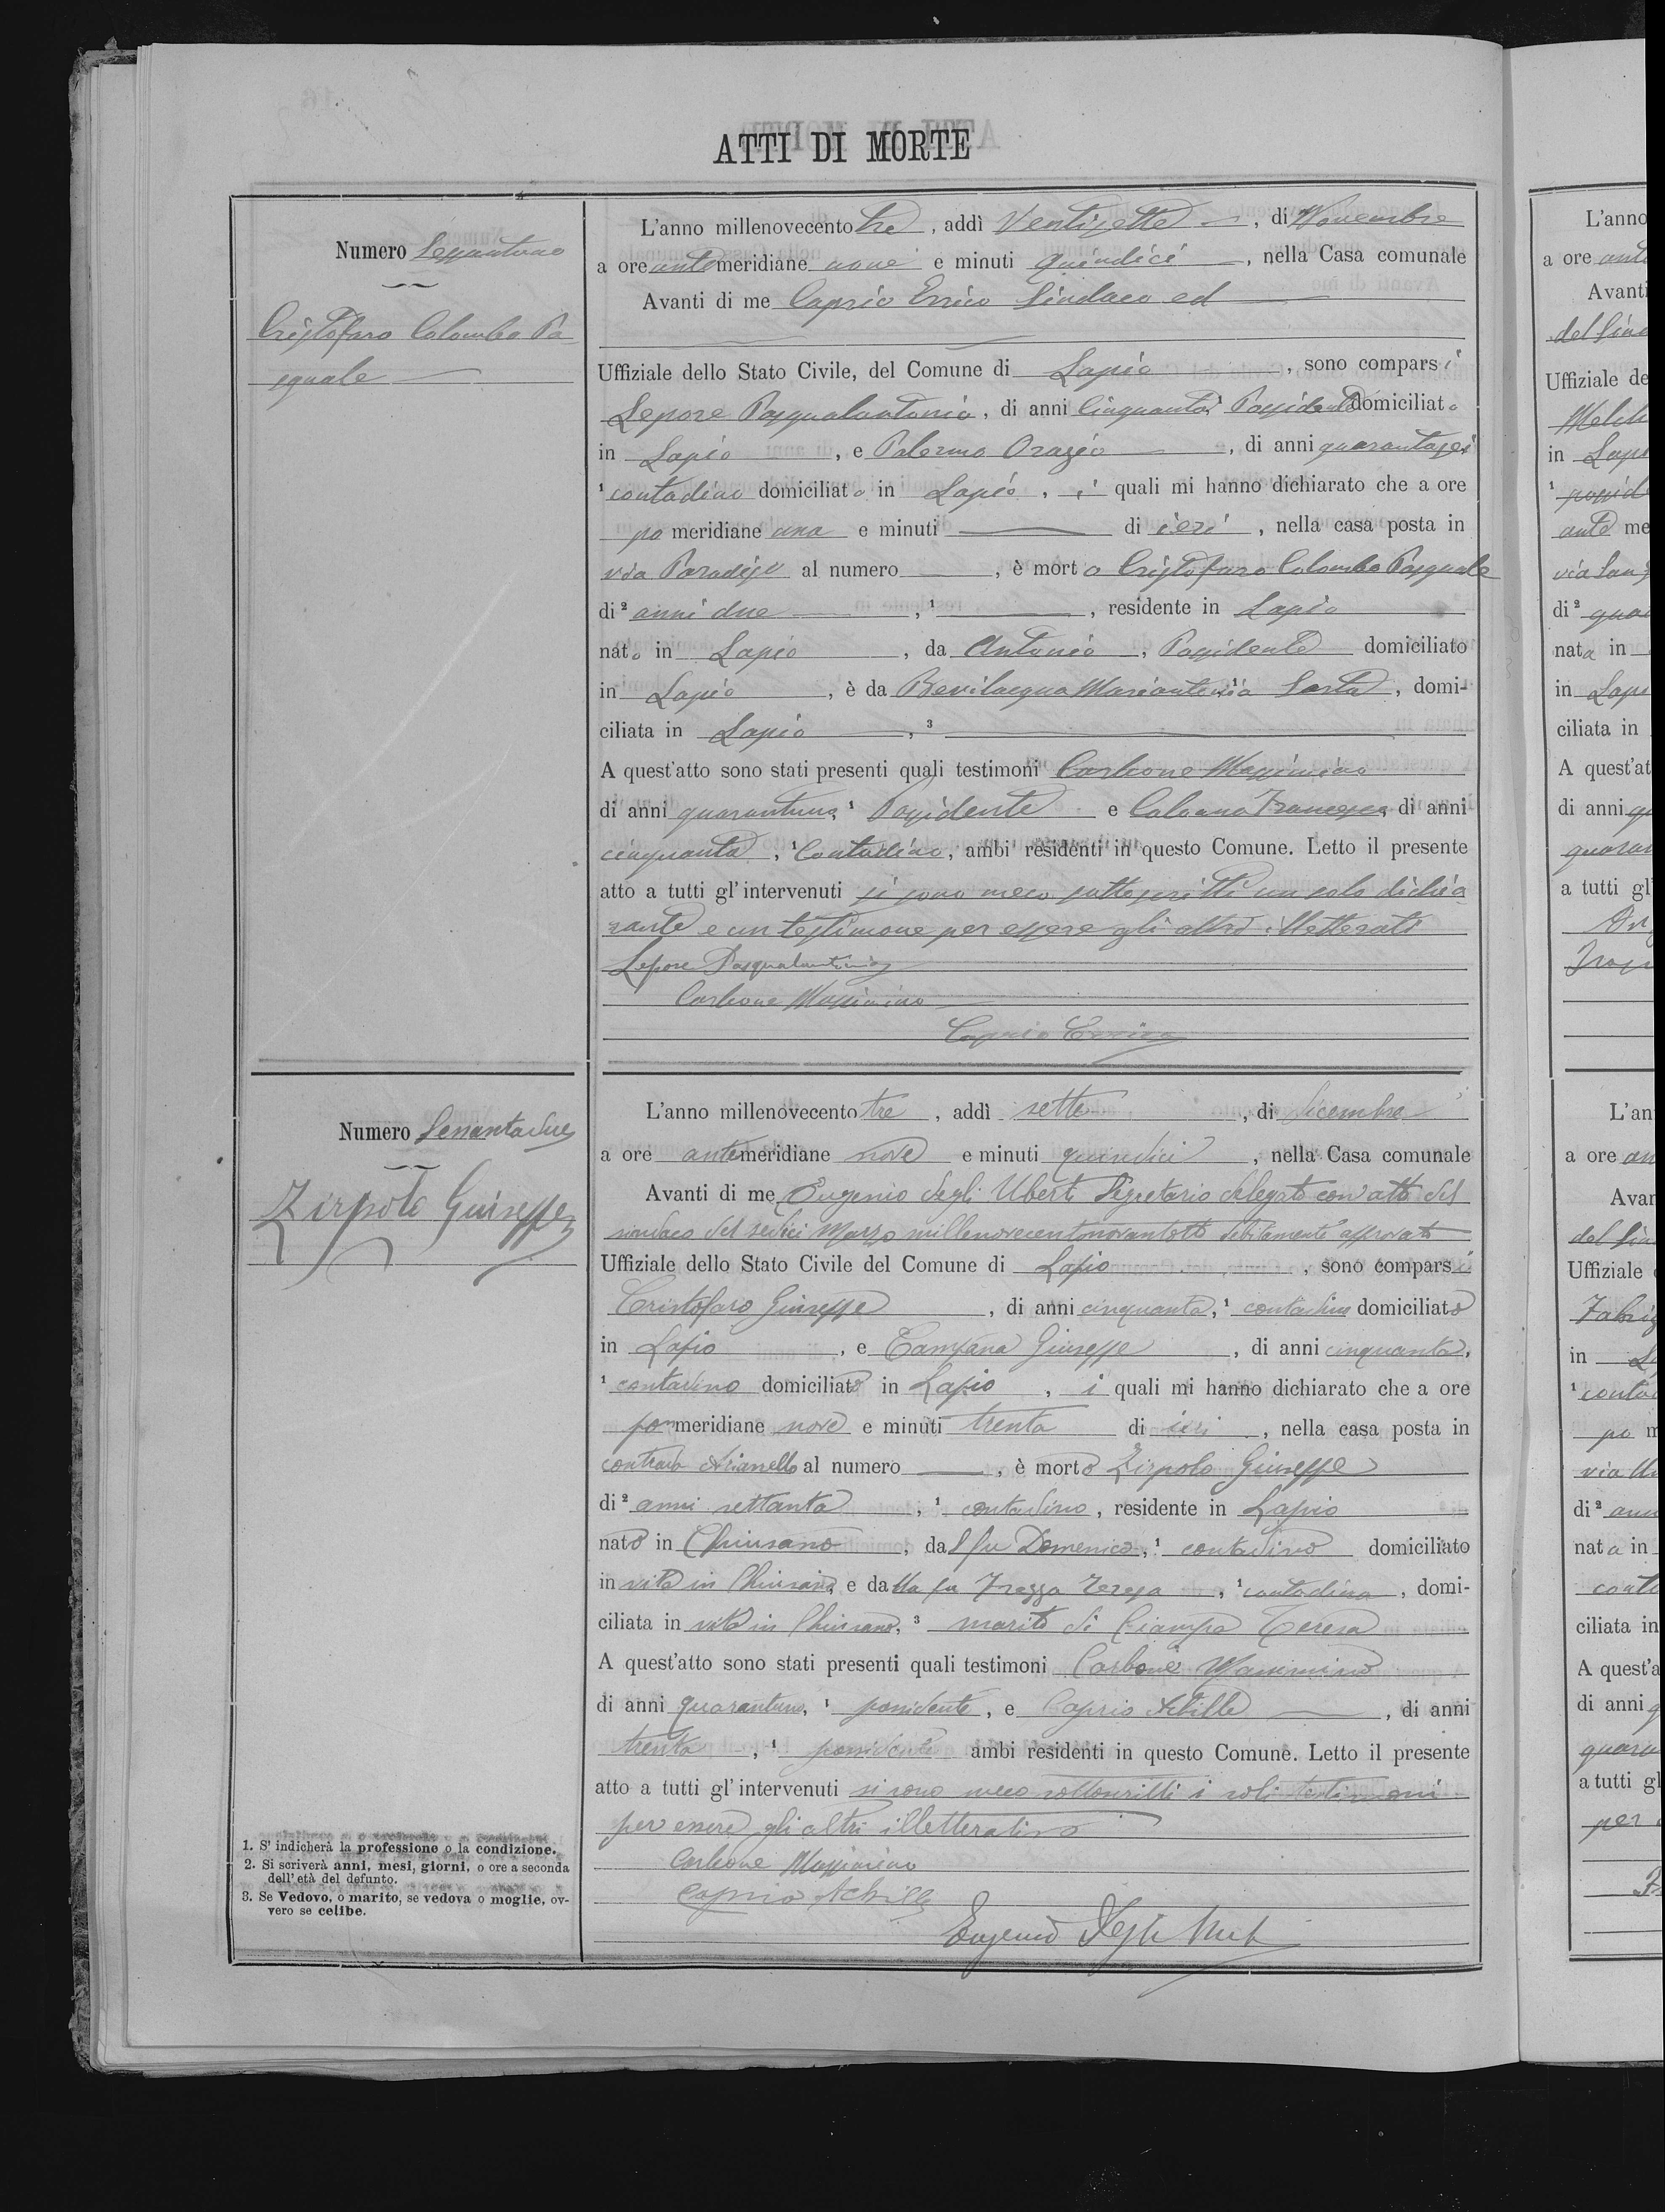 ATTI DI MORTE
Numero Sessantuno
Cristofaro Colombo Pa-
squale
L'anno millenovecento tre, addì Ventisette, di Novembre
a ore antemeridiane nove e minuti quindici, nella Casa comunale
Avanti di me Caprio Errico Sindaco ed
Uffiziale dello Stato Civile, del Comune di Lapio, sono comparsi
Lepore Pasqualantonio, di anni cinquanta, Possidente domiciliato
in Lapio, e Palermo Orazio, di anni quarantasei
¹ contadino domiciliato in Lapio, i quali mi hanno dichiarato che a ore
pomeridiane una e minuti di ieri, nella casa posta in
via Paradiso al numero, è morto Cristofaro Colombo Pasquale
di ² anni due, ¹, residente in Lapio
nato in Lapio, da Antonio, Possidente domiciliato
in Lapio, è da Bevilacqua Mariantonia Sarta, domi-
ciliata in Lapio, ³
A quest'atto sono stati presenti quali testimoni Carbone Massimino
di anni quarantuno, ¹ Possidente e Calvano Francesco, di anni
cinquanta, ¹ Contadino, ambi residenti in questo Comune. Letto il presente
atto a tutti gl'intervenuti si sono meco sottoscritti un solo dichia
rante e un testimone per essere gli altri illetterati
Lepore Pasqualantonio
Carbone Massimino
Caprio Errico
Numero Sessantadue
Zirpolo Giuseppe
L'anno millenovecento tre, addì sette, di Dicembre
a ore antemeridiane nove e minuti quindici, nella Casa comunale
Avanti di me Eugenio degli Uberti Segretario delegato con atto del
sindaco del sedici Marzo millenovecentonovantotto debitamente approvato
Uffiziale dello Stato Civile del Comune di Lapio, sono comparsi
Cristofaro Giuseppe, di anni cinquanta, ¹ contadino domiciliato
in Lapio, e Campana Giuseppe, di anni cinquanta,
¹ contadino domiciliato in Lapio, i quali mi hanno dichiarato che a ore
pommeridiane nove e minuti trenta di ieri, nella casa posta in
contrada Arianello al numero, è morto Zirpolo Giuseppe
di ² anni settanta, ¹ contadino, residente in Lapio
nato in Chiusano, dal fu Domenico, ¹ contadino domiciliato
in vita in Chiusano, e dalla fu Frezza Teresa, ¹ contadina, domi-
ciliata in vita in Chiusano, ³ marito di Ciampa Teresa
A quest'atto sono stati presenti quali testimoni Carbone Massimino
di anni quarantuno, ¹ possidente, e Caprio Achille, di anni
trenta, ¹ possidente ambi residenti in questo Comune. Letto il presente
atto a tutti gl'intervenuti si sono meco sottoscritti i soli testimoni
per essere gli altri illetterati
Carbone Massimino
Caprio Achille
Eugenio Degli Uberti
1. S' indicherà la professione o la condizione.
2. Si scriverà anni, mesi, giorni, o ore a seconda
dell'età del defunto.
3. Se Vedovo, o marito, se vedova o moglie, ov-
vero se celibe.
L'anno
a ore
Avanti
Uffiziale de
in
ante me
di ²
nata in
in
ciliata in
A quest'at
di anni
a tutti gl'
L'an
a ore
Avan
Uffiziale
in
¹
di ²
nata in
ciliata in
A quest'a
di anni
a tutti gl
per